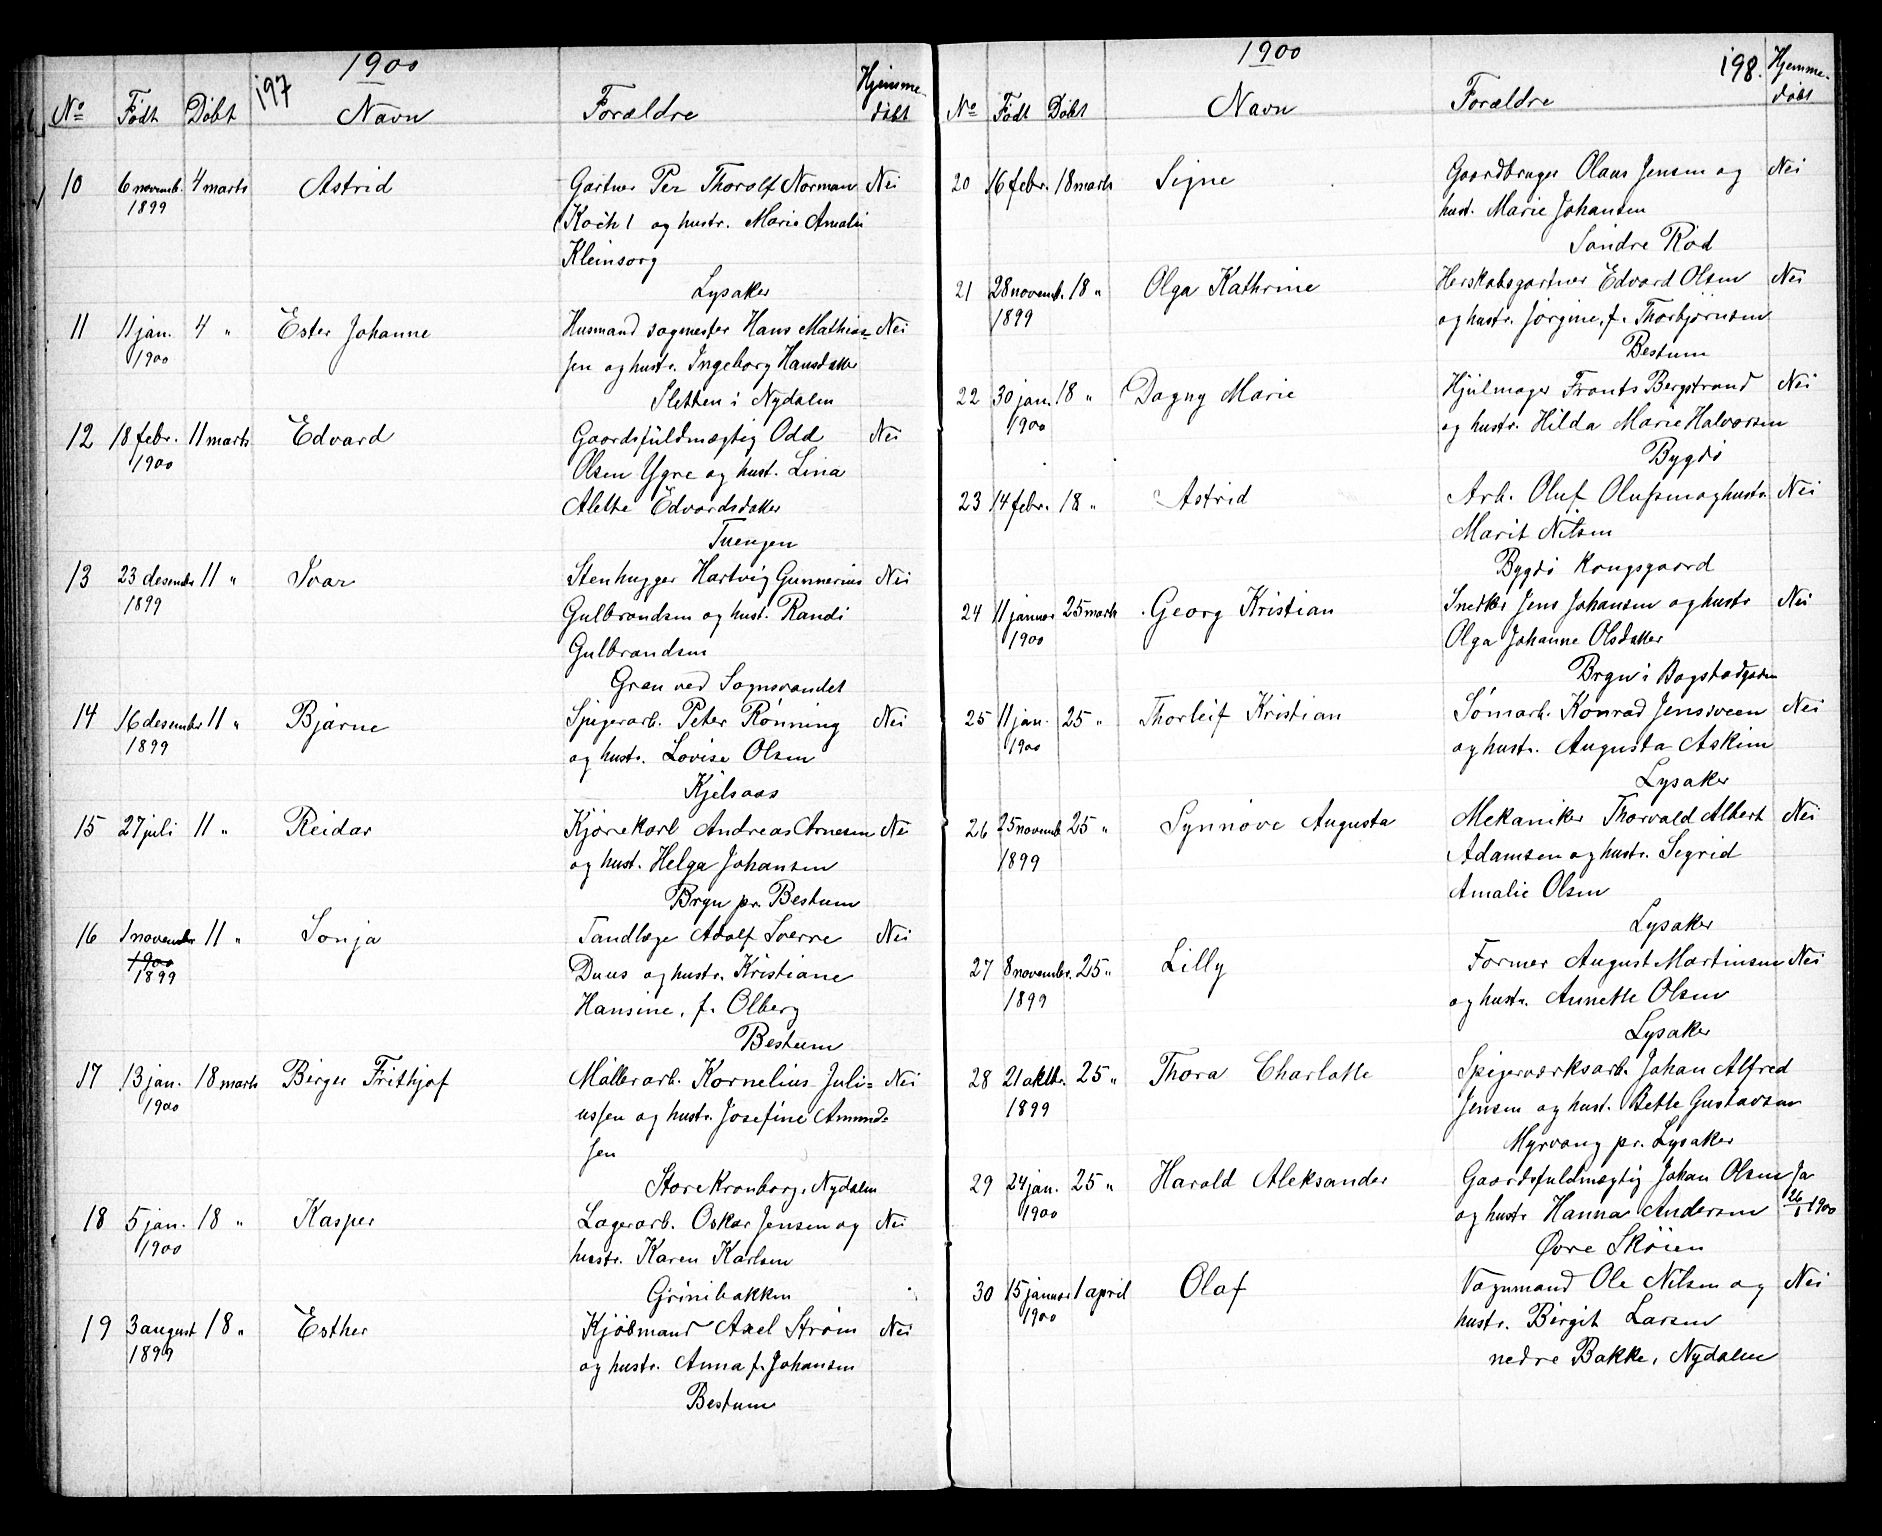 1900
197
No Født Döbt Navn Forældre Hjemme-
döbt
10 6 novemb. 4 marts Astrid Gartner Per Thorolf Norman Nei
1899 (Koch) og hustr. Marie Amalie
Kleinsorg
Lysaker
11 11 jan. 4 " Ester Johanne Husmand sagmester Hans Mathias= Nei
1900 sen og hustr. Ingeborg Hansdatter
Sletten i Nydalen
12 18 febr. 11 marts Edvard Gaardsfuldmægtig Odd Nei
1900 Olsen Ygre og hust. Lina
Alette Edvardsdatter
Tuengen
13 23 desember 11 " Ivar Stenhugger Hartvig Gunnerius Nei
1899 Gulbrandsen og hust. Randi
Gulbrandsen
Gran ved Sognsvandet
14 16 desember 11 " Bjarne Spigerarb. Peter Rönning Nei
1899 og hustr. Lovise Olsen
Kjelsaas
15 27 juli 11 " Reidar Kjörekarl Andreas Arnesen Nei
og hust. Helga Johansen
Bryn pr. Bestum
16 1 november 11 " Sonja Tandlæge Adolf Sverre Nei
1900
1899 Duus og hustr. Kristiane
Hansine, f. Olberg
Bestum
17 13 jan. 18 marts Birger Frithjof Möllerarb. Kornelius Juli= Nei
1900 ussen og hustr. Josefine Amund=
sen
Store Kronborg, Nydalen
18 5 jan. 18 " Kasper Lagerarb. Oskar Jensen og Nei
1900 hustr. Karen Karlsen
Grinibakken
19 3 august 18 " Esther Kjöbmand Axel Ström Nei
1899 og hustr. Anna f. Johansen
Bestum
1900
198.
No Födt Döbt Navn Forældre Hjemme-
döbt
20 16 febr. 18 marts Signe Gaardbruger Olaus Jensen og Nei
hust. Marie Johansen
Söndre Röd
21 28 novemb. 18 " Olga Kathrine Herskabsgartner Edvard Olsen Nei
1899 og hustr. Jörgine, f. Thorbjörnsen
Bestum
22 30 jan. 18 " Dagny Marie Hjulmager Frants Bergstrand Nei
1900 og hustr. Hilda Marie Halvorsen
Bygdö
23 14 febr. 18 " Astrid Arb. Oluf Olufsen og hustr. Nei
Marit Nilsen
Bygdö Kongsgaard
24 11 januar 25 marts Georg Kristian Snedker Jens Johansen og hustr Nei
1900 Olga Johanne Olsdatter
Bryn i Bogstadgaden
25 11 jan. 25 " Thorleif Kristian Sömarb. Konrad Jensveen Nei
1900 og hustr. Augusta Askim
Lysaker
26 25 novemb. 25 " Synnöve Augusta Mekaniker Thorvald Albert Nei
1899 Adamsen og hustr. Segrid
Amalie Olsen
Lysaker
27 8 novembr. 25 " Lilly Former August Martinsen Nei
1899 og hustr. Annette Olsen
Lysaker
28 21 oktbr. 25 " Thora Charlotte Spigerværksarb. Johan Alfred
1899 Jensen og hust. Bette Gustavsen
Myrvang pr. Lysaker
29 24 jan. 25 " Harald Aleksander Gaardsfuldmægtig Johan Olsen Ja
1900 og hustr Hanna Andersen 26/1 1900
Øvre Sköien
30 15 januar 1 april Olaf Vognmand Ole Nilsen og Nei
1900 hustr. Birgit Larsen
nedre Bakke, Nydalen